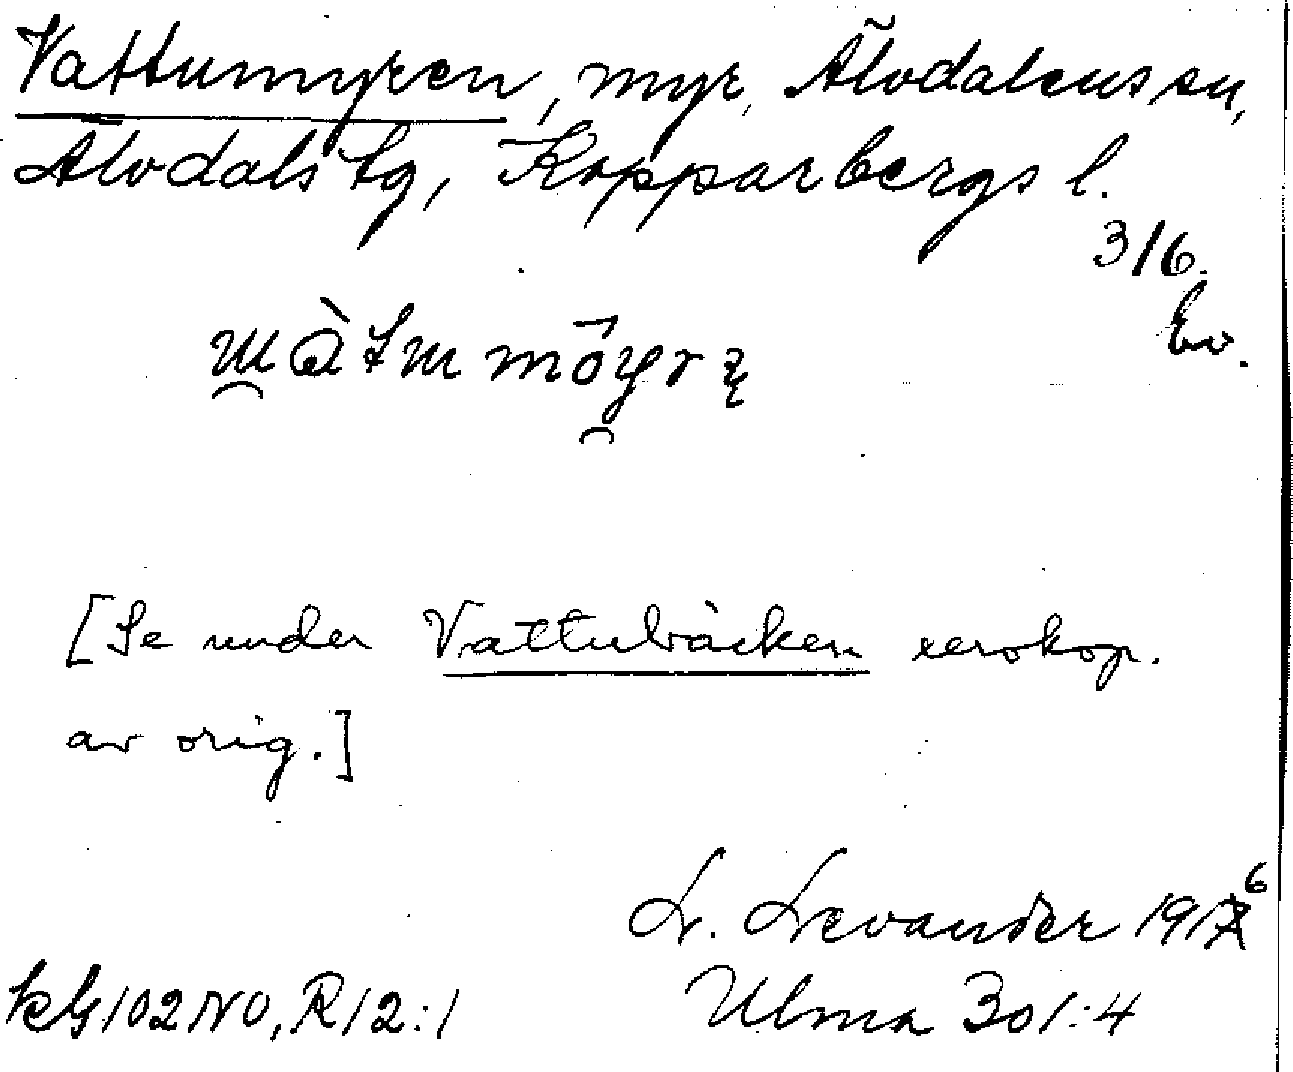 Vattumyren, myr, Älvdalens sn,
Älvdals tg, Kopparbergs l.
3/6.
Ev.
[Se under Vattubäcken xerokop.
av orig.]
L. Levander 1916
kbl 102 NO, R12:1
Ulma 301:4